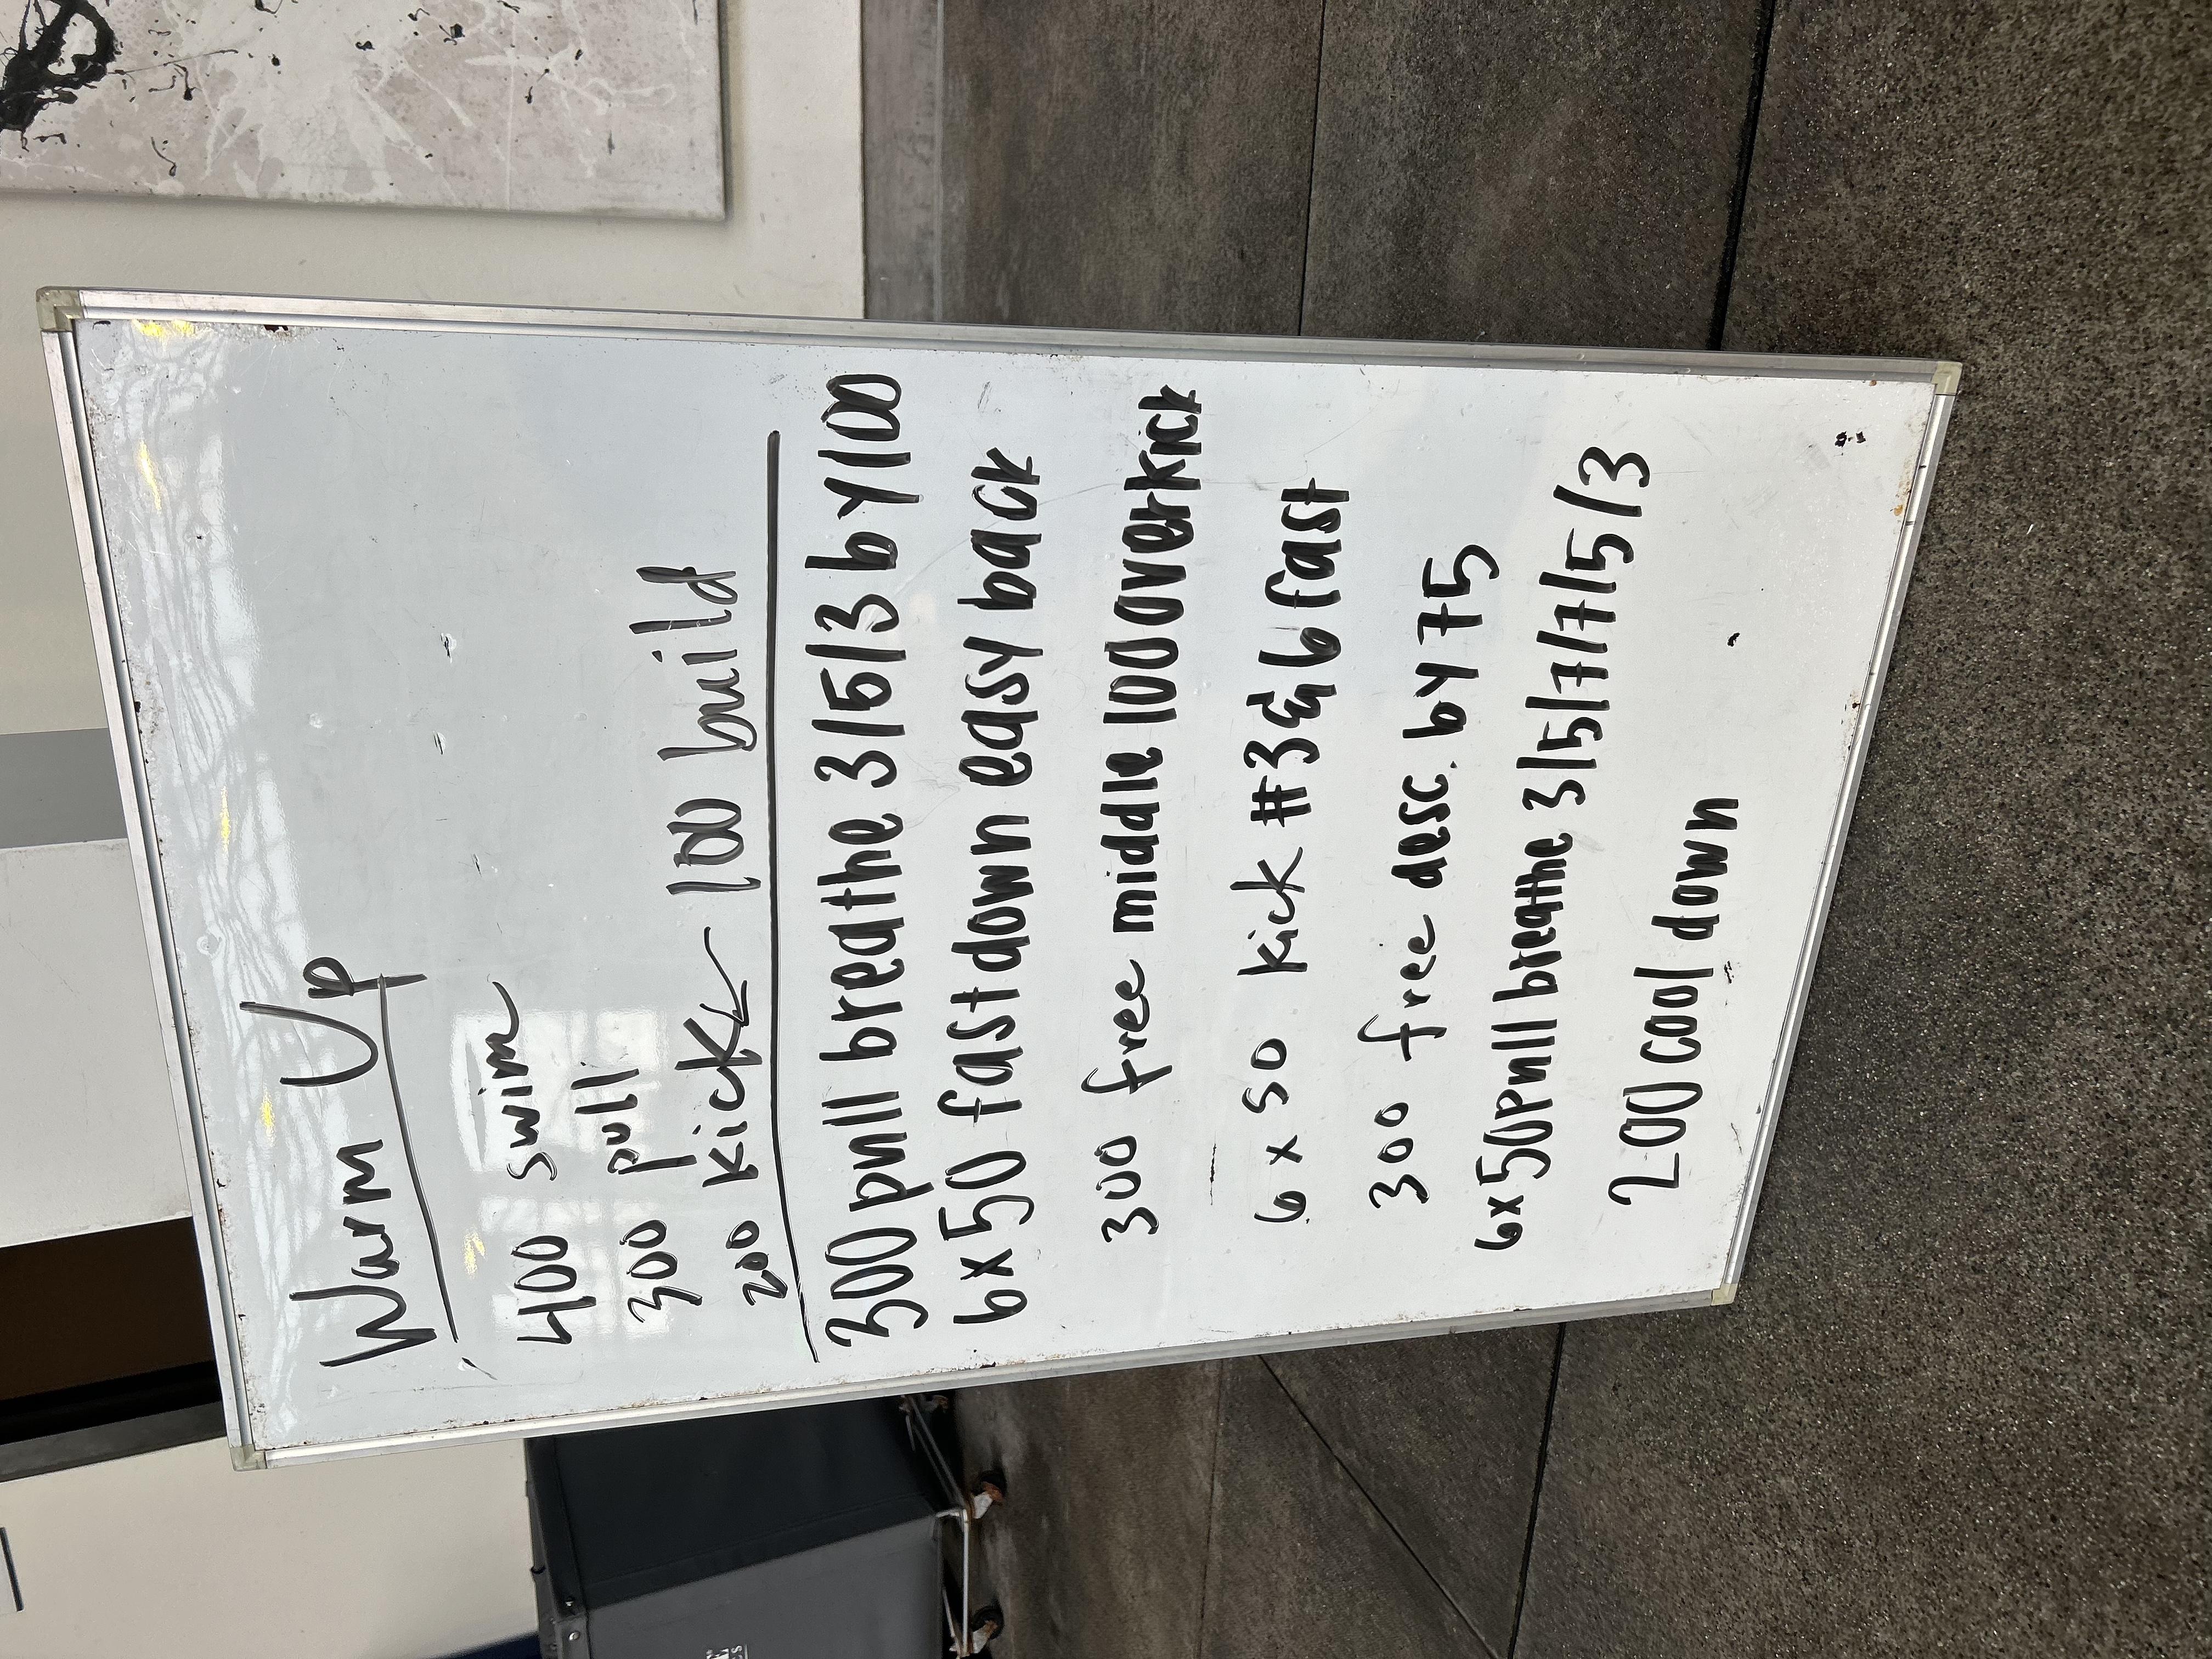 Warm Up
400 swim
300 pull
200 kick - 100 build
300 pull breathe 3/5/3 by 100
6x50 fast down easy back
300 free middle 100 overkick
6 x 50 kick #3 & 6 fast
300 free desc. by 75
6x50 pull breathe 3/5/7/7/5/3
200 cool down